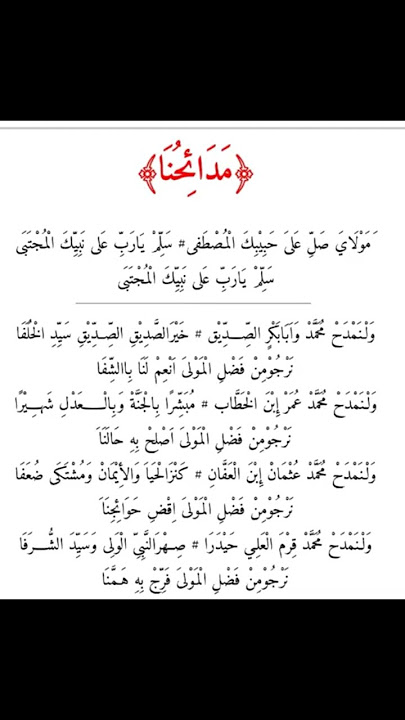 مَدَائِحُنَا
مَوْلَايَ صَلِّ عَلىَ حَبِيْبِكَ الْمُصْطَفى# سَلِّمْ يَارَبِّ عَلى نَبِيِّكَ الْمُجْتَبَى
سَلِّمْ يَارَبِّ عَلى نَبِيِّكَ الْمُجْتَبَى
وَلْنَمْدَحْ مُحَمَّدْ وَآبَابَكْرٍ الصِّــدِّيْق # خَيْرَالصَّدِيْقِ الصِّدِّيْقِ سَيِّدِ الْخُلَفَا
نَرْجُوْمِنْ فَضْلِ الْمَوْلىَ اَنْعِمْ لَنَا بِاالشِّفَا
وَلْنَمْدَحْ مُحَمَّدْ عُمَرْ إِبْنَ الْخَطَّاب # مُبَشِّرًا بِالْجَنَّةْ وَبِالْــــعَدْلِ شَهِــيْرًا
نَرْجُوْمِنْ فَضْلِ الْمَوْلىَ اَصْلِحْ بِهِ حَالَنَا
وَلْنَمْدَحْ مُحَمَّدْ عُثْمَانْ إِبْنَ الْعَفَّانِ # كَنْزَالْحَيَا وَالْاِيْمَانْ وَمُشْتَكَى ضُعَفَا
نَرْجُوْمِنْ فَضْلِ الْمَوْلىَ اِقْضِ حَوَائِجِنَا
وَلْنَمْدَحْ مُحَمَّدْ قِرْمَ الْعَلِي حَيْدَرَا # صِــهْرَالنَّبِيِّ الْوَلِى وَسَيِّدَ الشُّــرَفَا
نَرْجُوْمِنْ فَضْلِ الْمَوْلىَ فَرِّجْ بِهِ هَــمَّنَا